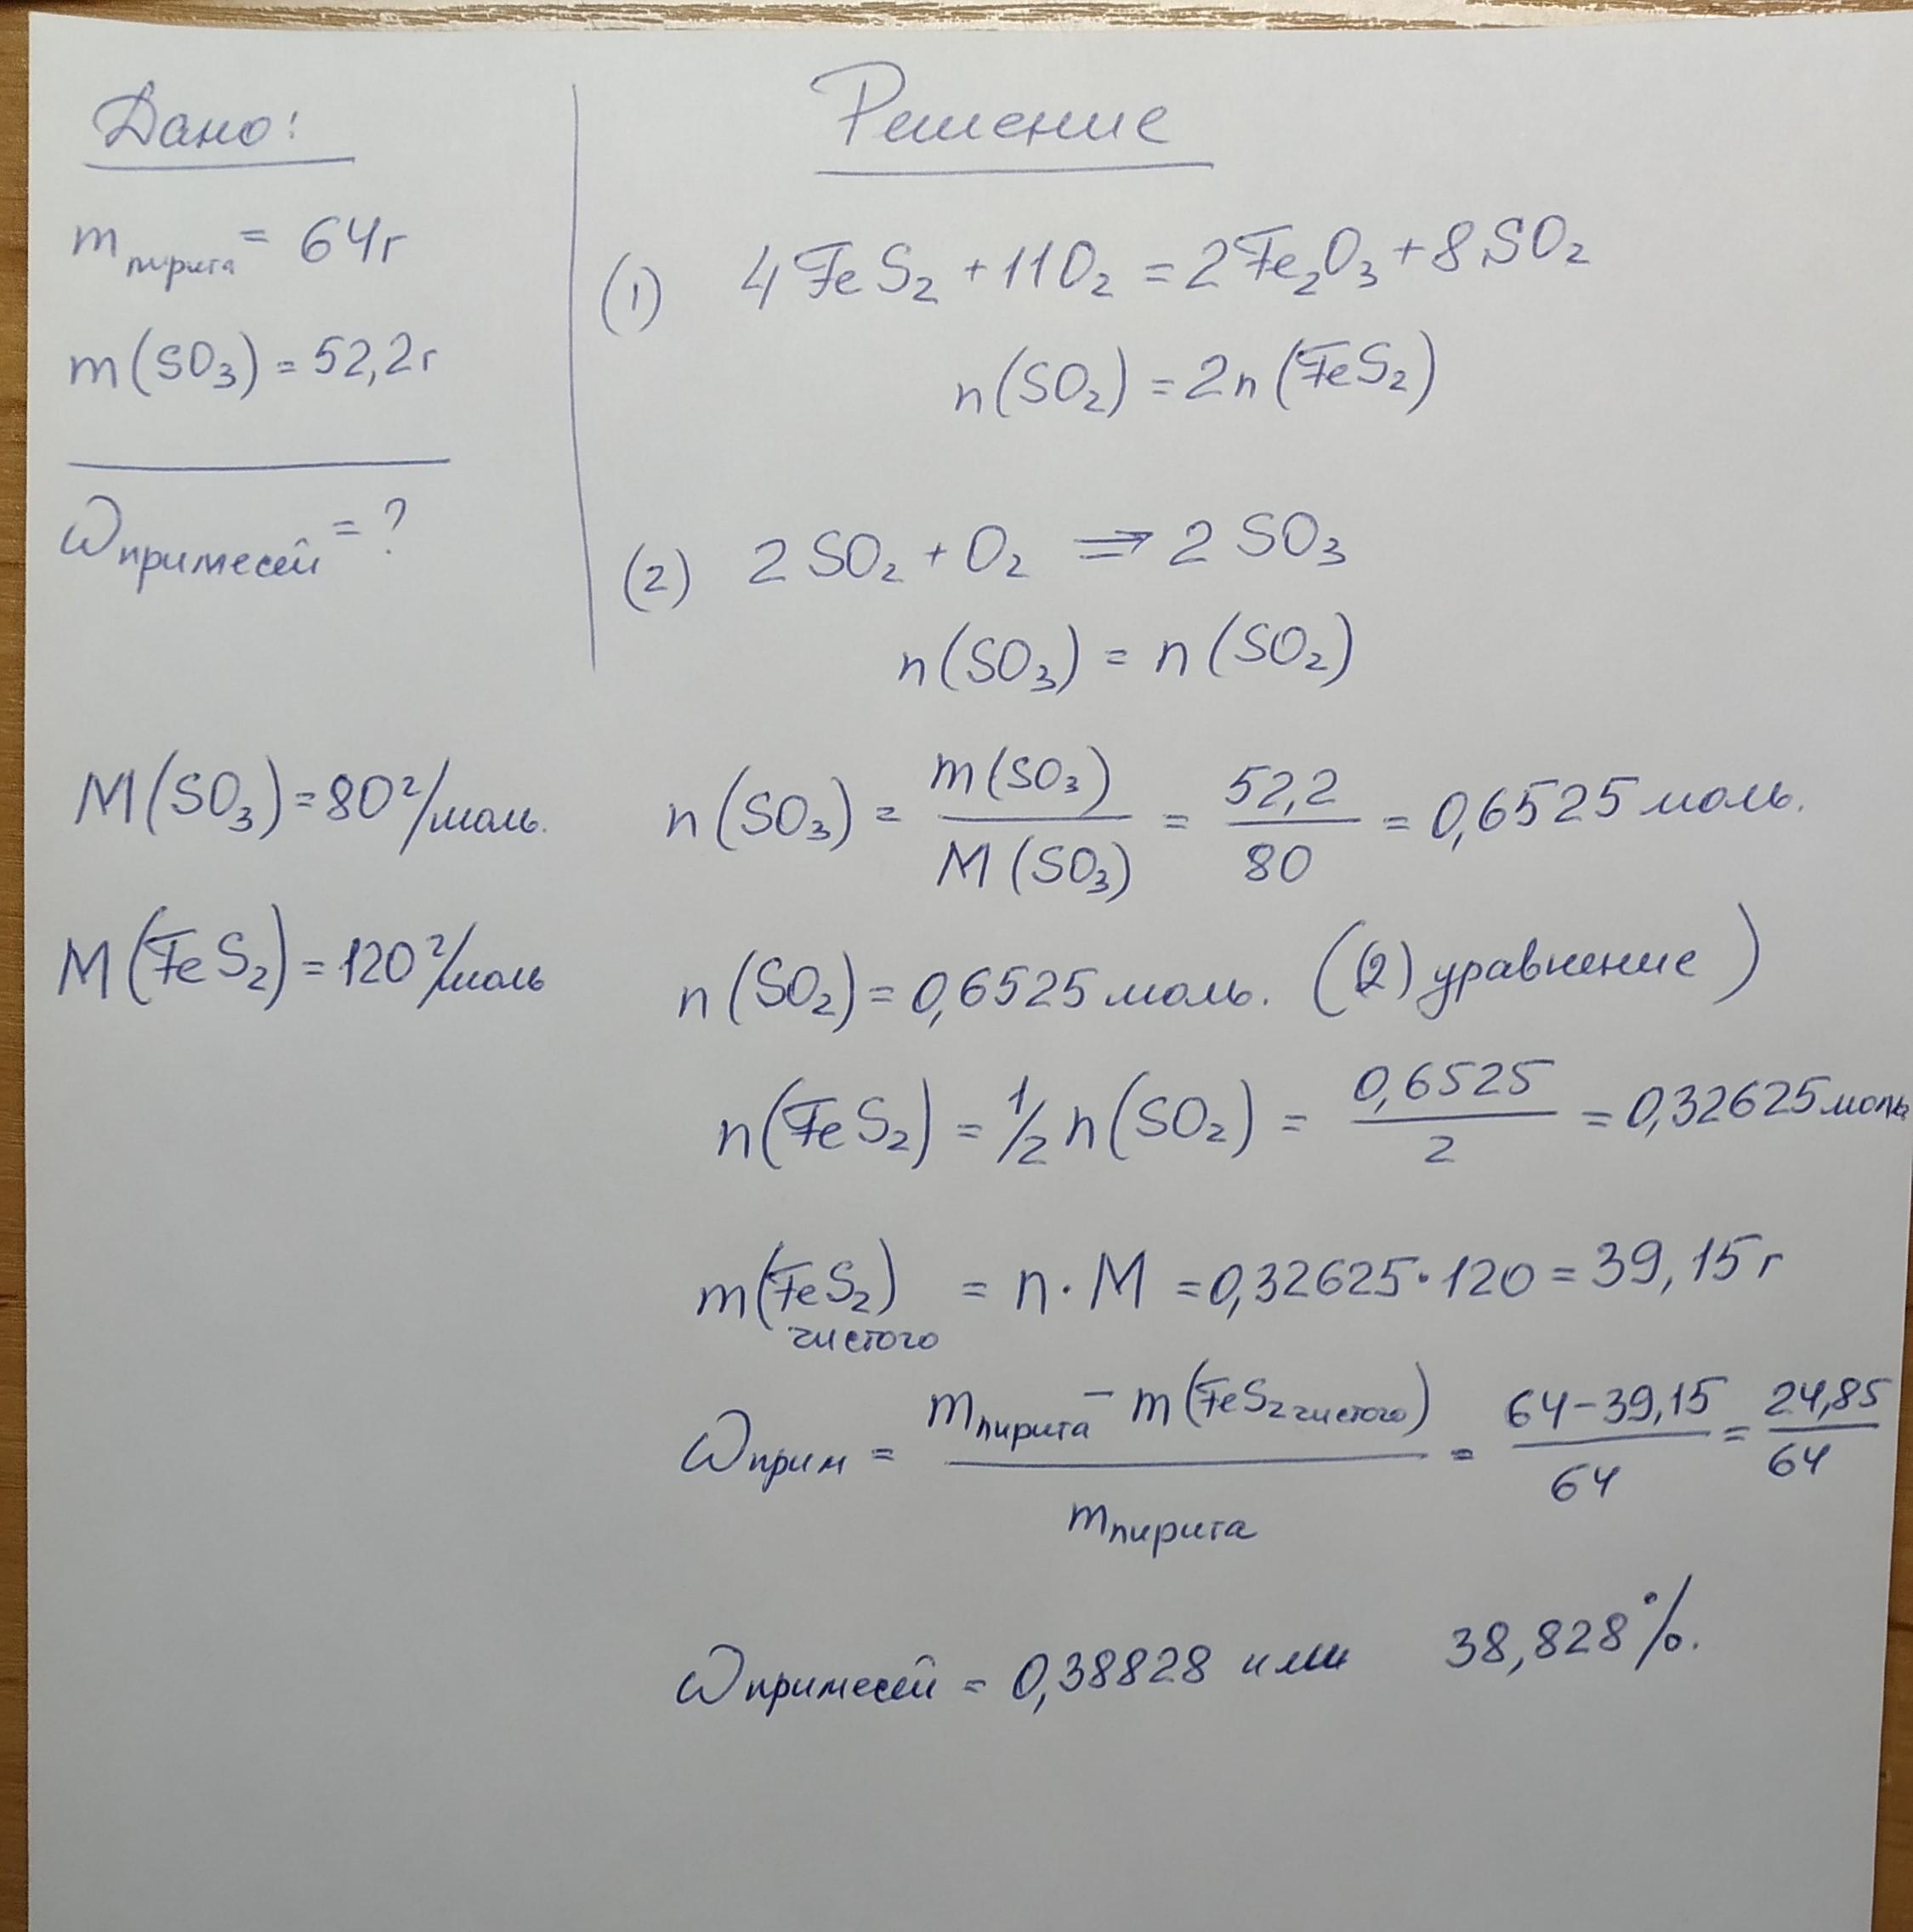 Дано:
m пирита = 64г
m(SO₃) = 52,2г
ω примесей = ?
M(SO₃) = 80 г/моль.
M(FeS₂) = 120 г/моль
Решение
(1) 4FeS₂ + 11O₂ = 2Fe₂O₃ + 8SO₂
n(SO₂) = 2n(FeS₂)
(2) 2SO₂ + O₂ ⇒ 2SO₃
n(SO₃) = n(SO₂)
n(SO₃) = m(SO₃) / M(SO₃) = 52,2 / 80 = 0,6525 моль.
n(SO₂) = 0,6525 моль. ((2) уравнение)
n(FeS₂) = 1/2 n(SO₂) = 0,6525 / 2 = 0,32625 моль
m(FeS₂) чистого = n · M = 0,32625 · 120 = 39,15 г
ω прим = m пирита − m(FeS₂ чистого) / m пирита = 64 − 39,15 / 64 = 24,85 / 64
ω примесей = 0,38828 или 38,828%.